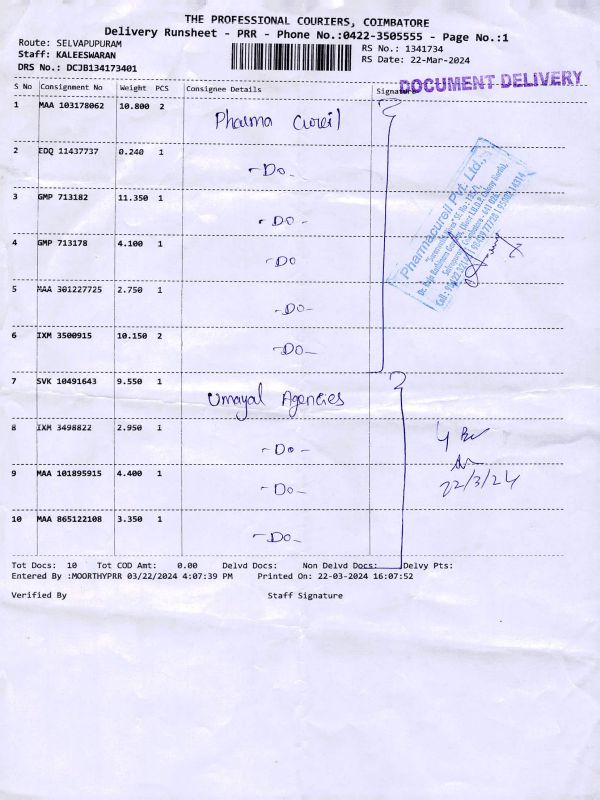 THE PROFESSIONAL COURIERS, COIMBATORE
Delivery Runsheet - PRR - Phone No.:0422-3505555 - Page No.:1
Route: SELVAPUPURAM
Staff: KALEESWARAN
DRS No.: DCJB134173401
RS No.: 1341734
RS Date: 22-Mar-2024
DOCUMENT DELIVERY
S No Consignment No Weight PCS Consignee Details Signature
1 MAA 103178062 10.800 2 Pharma Cureil
2 EDQ 11437737 0.240 1 -Do-
3 GMP 713182 11.350 1 -Do-
4 GMP 713178 4.100 1 -Do
5 MAA 301227725 2.750 1 -Do-
6 IXM 3500915 10.150 2 -Do-
Pharmacureil Pvt. Ltd.,
7 SVK 10491643 9.550 1 Umayal Agencies
8 IXM 3498822 2.950 1 -Do-
9 MAA 101895915 4.400 1 -Do-
10 MAA 865122108 3.350 1 -Do-
22/3/24
Tot Docs: 10 Tot COD Amt: 0.00 Delvd Docs: Non Delvd Docs: Delvy Pts:
Entered By :MOORTHYPRR 03/22/2024 4:07:39 PM Printed On: 22-03-2024 16:07:52
Verified By Staff Signature